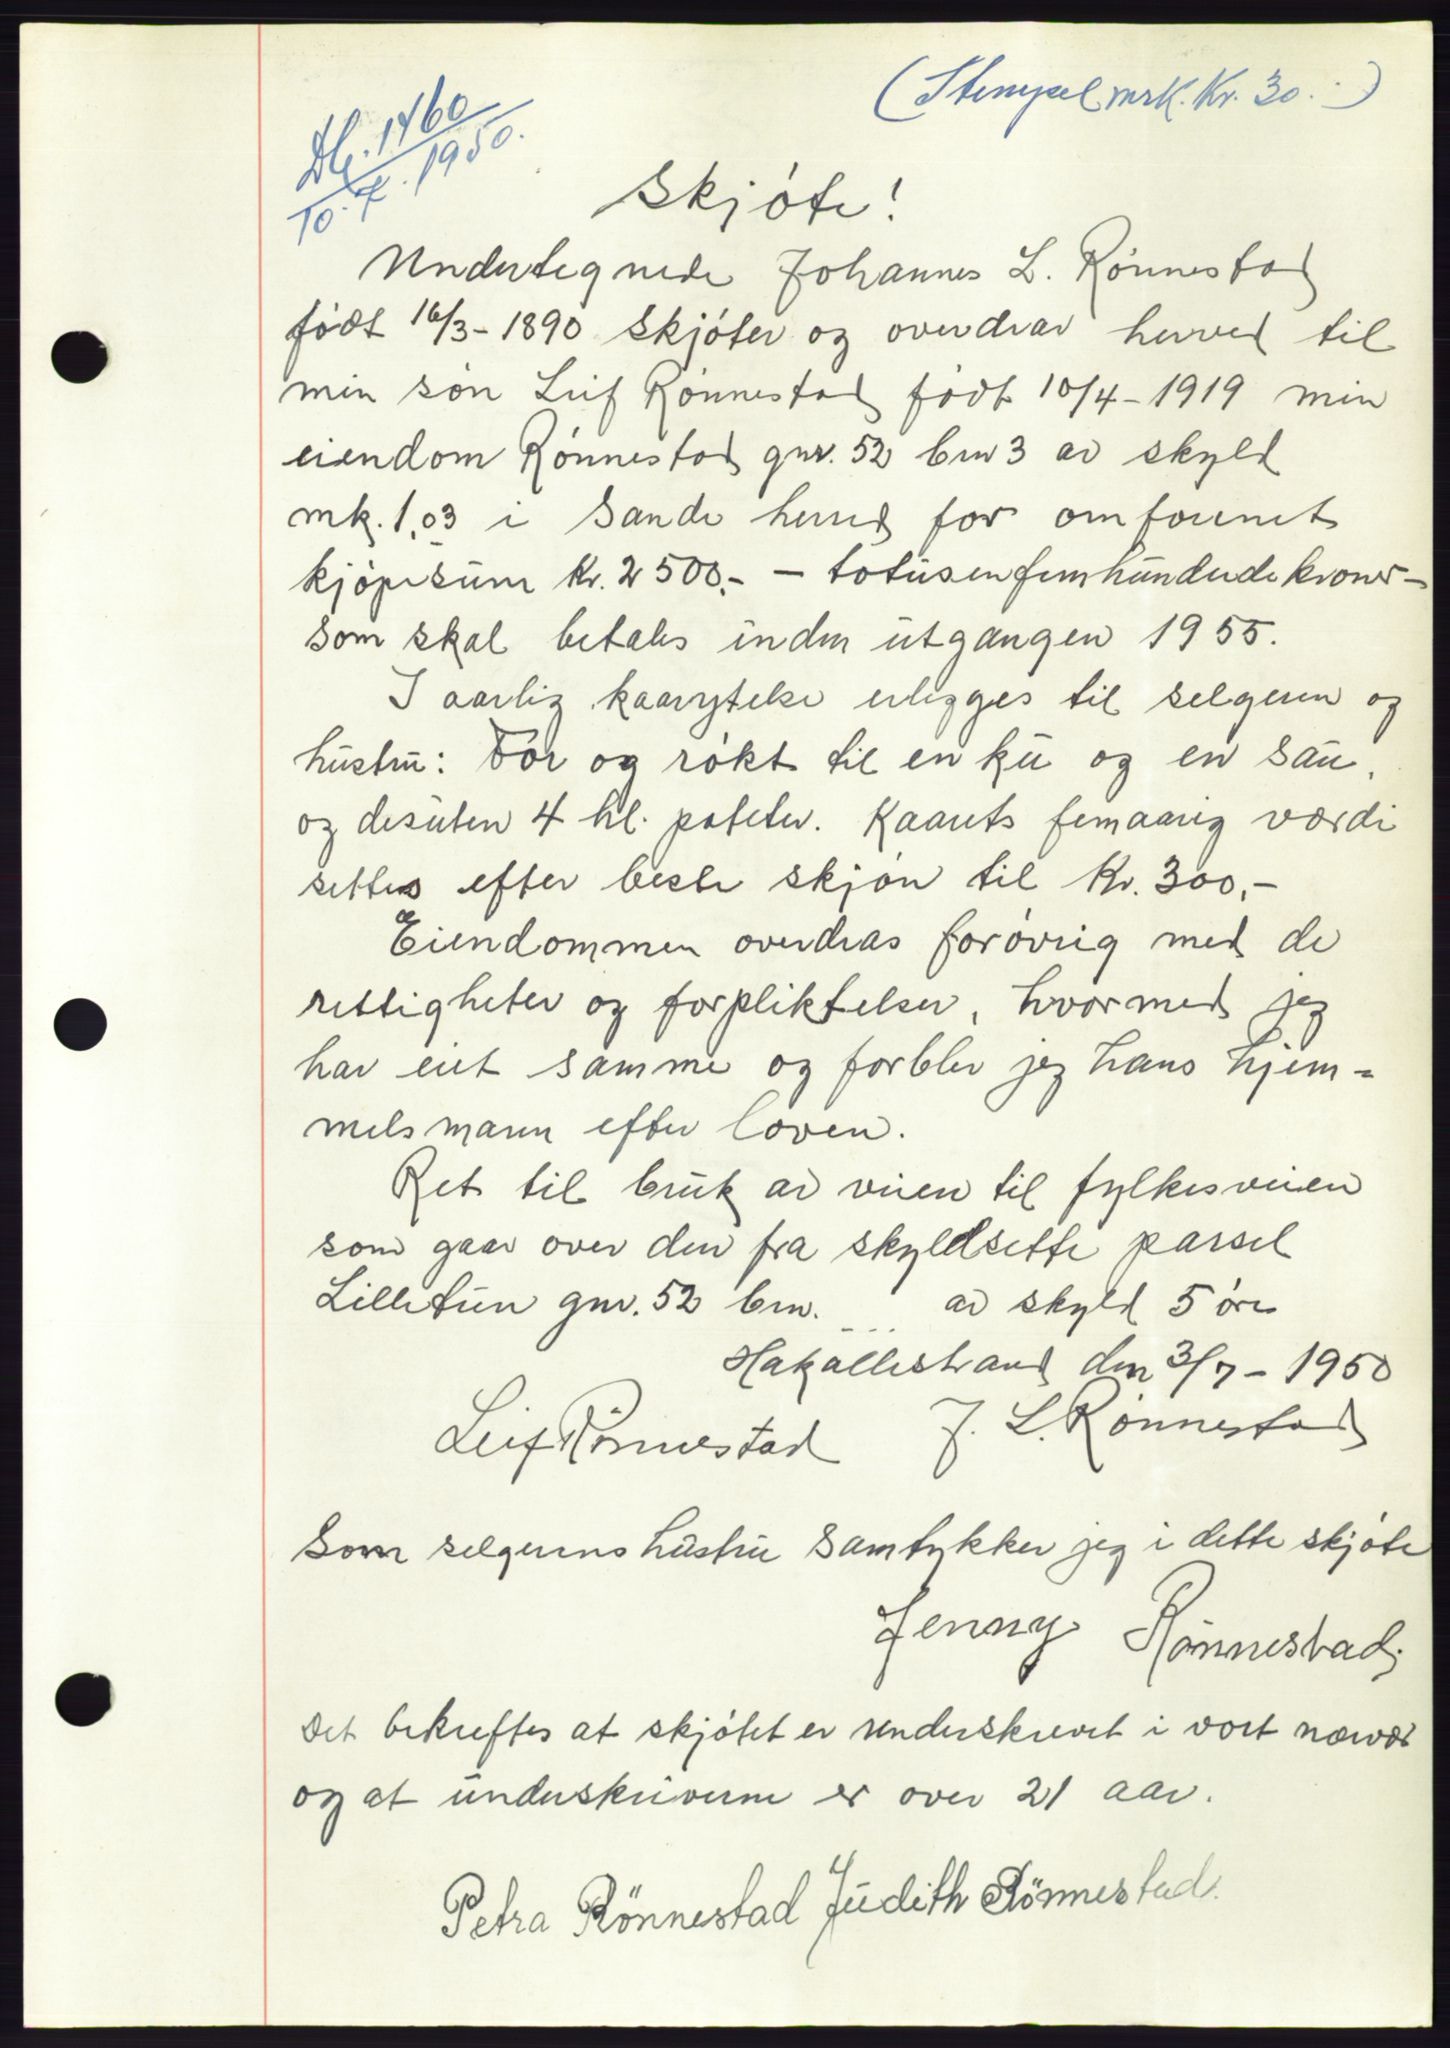 (Stempelmrk. Kr. 30.-)
Db. 1460
10.7.1950.
Skjóte!
Undertegnede Johannes L. Rónnestad
født 16/3-1890 skjóter og overdrar herved til
min són Leif Rónnestad født 10/4-1919 min
eiendom Rónnestad gnr. 52 brn 3 av skyld
mk. 1,03 i Sande herred for omforenet
kjópesum Kr. 2500,- - totusenfemhundrede kroner -
som skal betales inden utgangen 1955.
I aarlig kaarytelse erlegges til selgeren og
hustru: For og rókt til en ku og en sau,
og desuten 4 hl. poteter. Kaarets femaarig værdi
settes efter beste skjón til Kr. 300,-
Eiendommen overdras forøvrig med de
rettigheter og forpliktelser, hvormed jeg
har eiet samme og forblir jeg hans hjem-
melsmann efter loven.
Ret til bruk av veien til fylkesveien
som gaar over den fra skyldsette parsel
Lilletun gnr. 52 brn. ... av skyld 5 óre
Hakallestrand den 3/7-1950
Leif Rönnestad J. L. Rónnestad
Som selgerens hustru samtykker jeg i dette skjóte
Jenny Rönnestad.
Det bekreftes at skjótet er underskrevet i vort nærvær
og at underskriverne er over 21 aar.
Petra Rönnestad Judith Rönnestad.